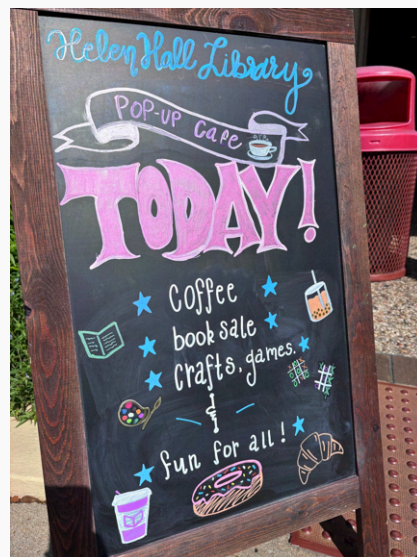 Helen Hall Library
POP-UP Cafe
TODAY!
Coffee
book sale
Crafts, games,
&
fun for all!